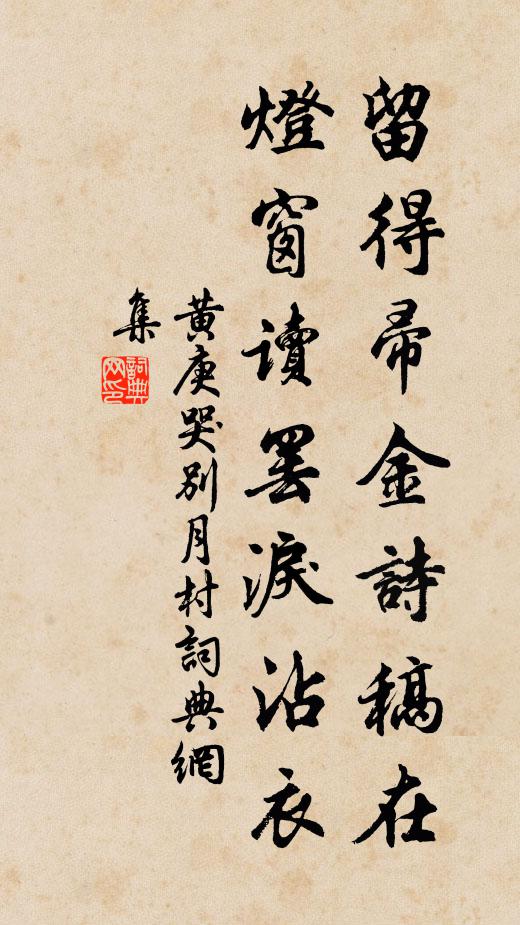 留得帚金詩稿在
燈窗讀罷淚沾衣
黃庚哭別月村詞典網
集
詞典網印